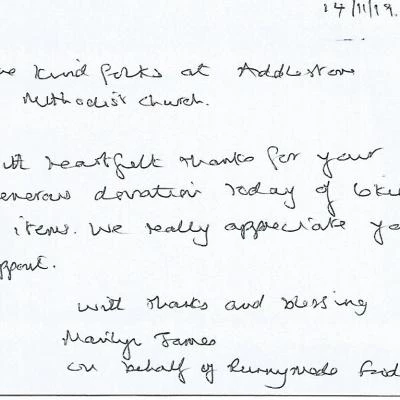 14/11/19.
kind folks at Addlestone
Methodist Church.
heartfelt thanks for your
donation today of
items. We really appreciate
with thanks and blessing
Marilyn James
on behalf of Runnymede